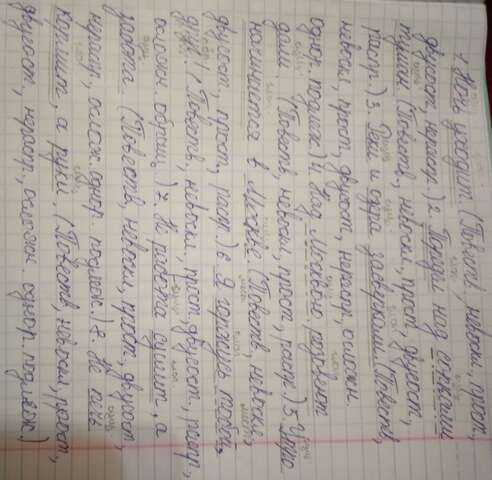 1. Ночь уходит. (Повеств, невоскл, прост,
двусост, нераспр.) 2. Поредел над степью
туман. (Повеств, невоскл, прост, двусост,
распр.) 3. Реки и озёра замерзли. (Повеств,
невоскл, прост, двусост, нераспр, осложн.
однор. подлеж.) 4. Над Москвою
дали. (Повеств, невоскл, прост, распр.) 5. Утро
начинается в Москве. (Повеств, невоскл,
двусост, прост, расп.) 6. Я горжусь тобой,
друг. (Повеств, невоскл, прост, двусост, распр,
осложн. обращ.) 7. Не работа сушит, а
забота. (Повеств, невоскл, прост, двусост,
нераспр, ослож. однор. подлеж.) 8. Не печь
кормит, а руки. (Повеств, невоскл, прост,
двусост, нераспр, осложн. однор. подлеж.)